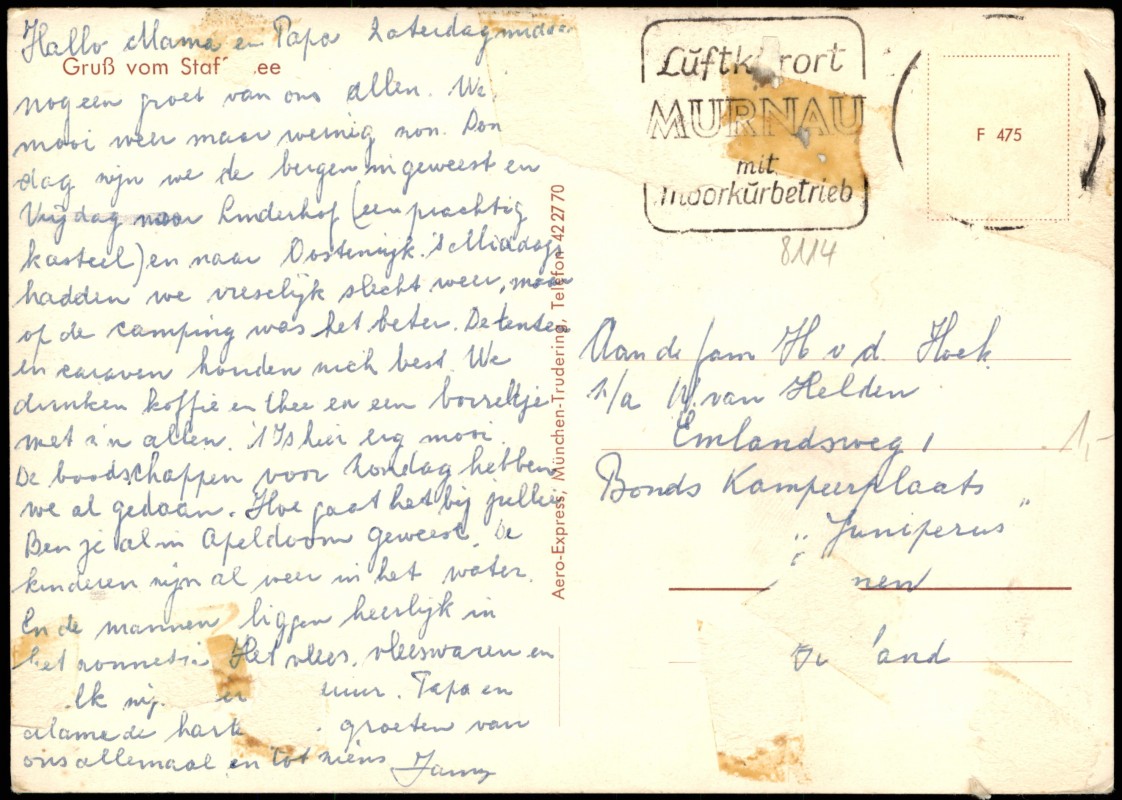 Hallo Mama en Papa Zaterdagmiddag
Gruß vom Staf ee
nog een groet van ons allen. We
mooi weer maar weinig zon. Don
dag zijn we de bergen ingeweest en
Vrijdag naar Linderhof (een prachtig
kasteel) en naar Oostenrijk. 's Middags
hadden we vreselijk slecht weer, maar
op de camping was het beter. De tenten
en caravan houden zich best. We
drinken koffie en thee en een borreltje
met z'n allen. 't Is hier erg mooi.
De boodschappen voor Zondag hebben
we al gedaan. Hoe gaat het bij jullie
Ben je al in Apeldoorn geweest. De
kinderen zijn al weer in het water.
En de mannen liggen heerlijk in
het zonnetje. Het vlees, vleeswaren en
uur. Papa en
de hart groeten van
ons allemaal en tot ziens
Luftkurort
MURNAU
mit
Moorkurbetrieb
F 475
8114
Aero-Express, München-Trudering, Telefon 42 27 70
Aan de fam H v d. Hoek
p/a W. van Helden
Eemlandsweg 1
1,-
Bonds Kampeerplaats
„Juniperus"
nen
and